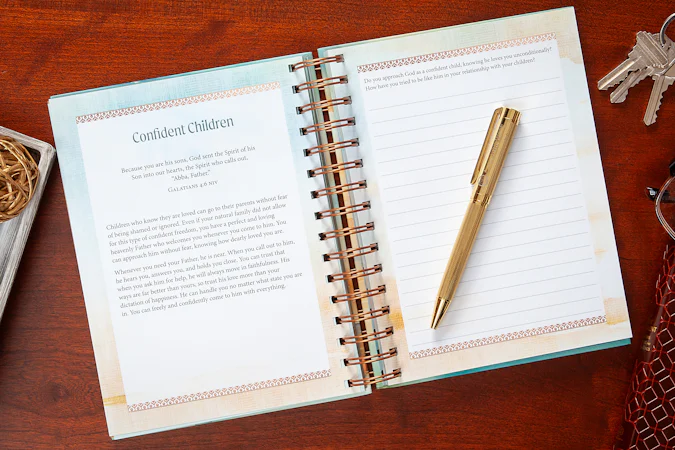 Confident Children
Because you are his sons, God sent the Spirit of his
Son into our hearts, the Spirit who calls out,
"Abba, Father."
Galatians 4:6 NIV
Children who know they are loved can go to their parents without fear
of being shamed or ignored. Even if your natural family did not allow
for this type of confident freedom, you have a perfect and loving
heavenly Father who welcomes you whenever you come to him. You
can approach him without fear, knowing how dearly loved you are.
Whenever you need your Father, he is near. When you call out to him,
he hears you, answers you, and holds you close. You can trust that
when you ask him for help, he will always move in faithfulness. His
ways are far better than yours, so trust his love more than your
dictation of happiness. He can handle you no matter what state you are
in. You can freely and confidently come to him with everything.
Do you approach God as a confident child, knowing he loves you unconditionally?
How have you tried to be like him in your relationship with your children?